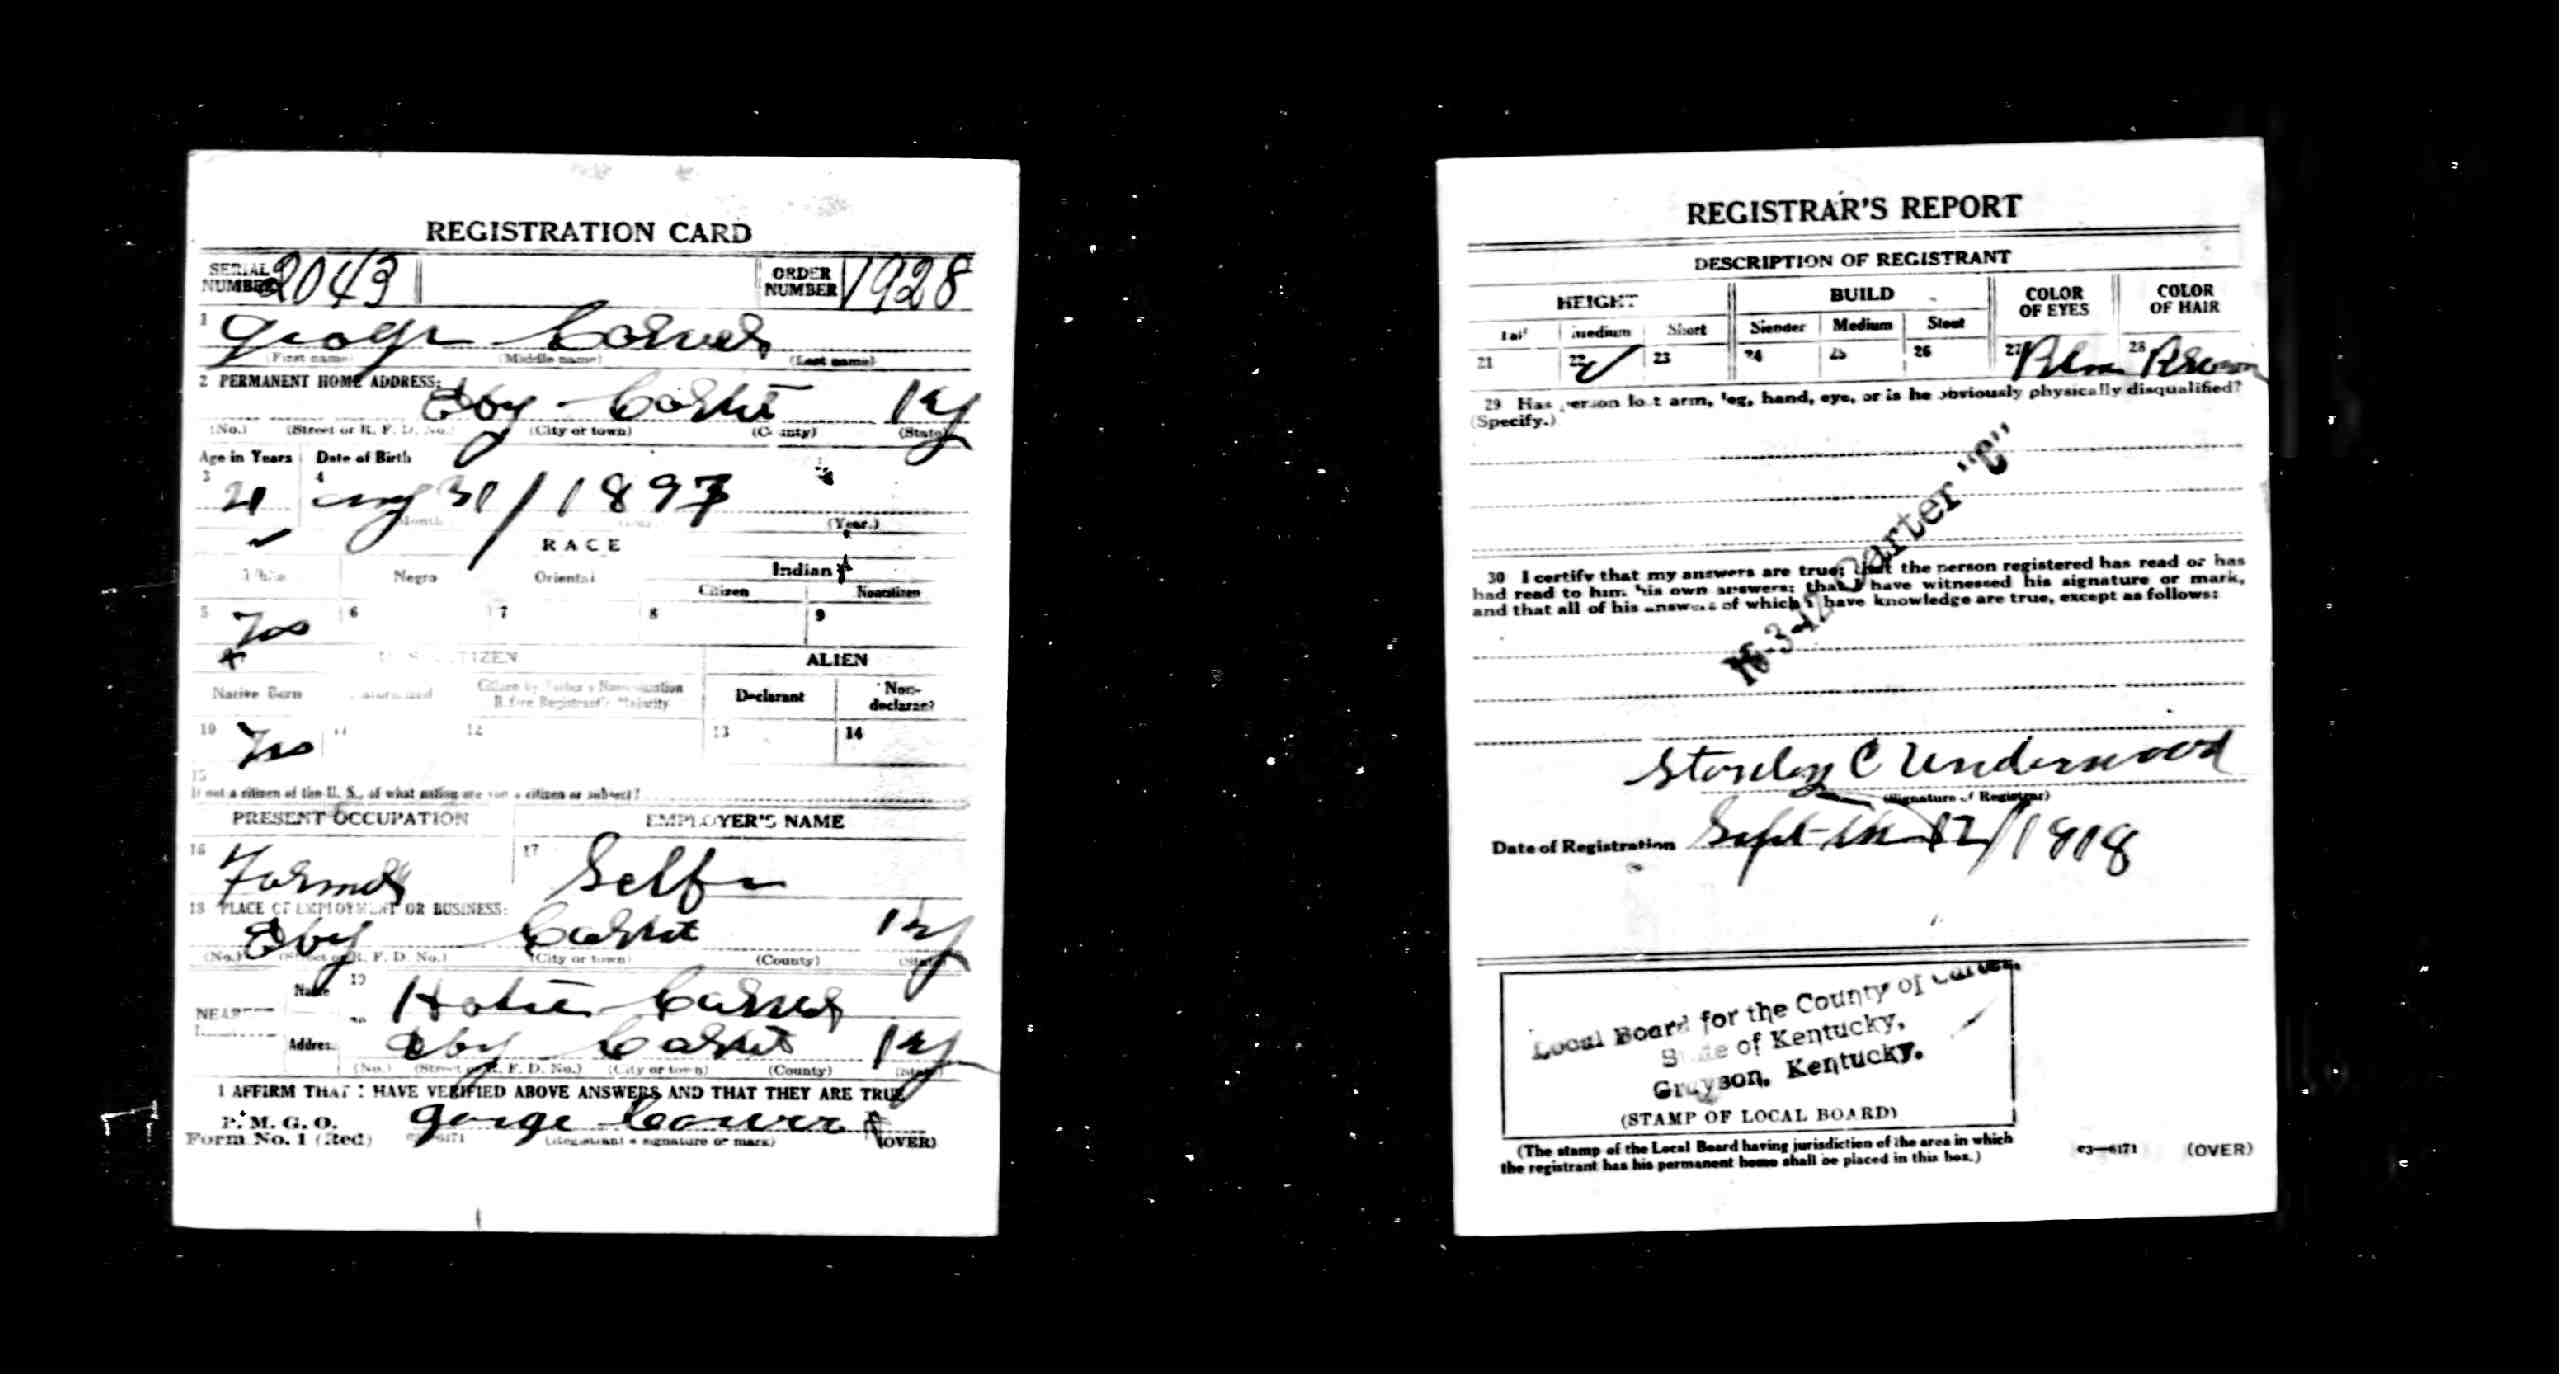 REGISTRATION CARD
SERIAL NUMBER 2043
ORDER NUMBER 1928
1
(First name) (Middle name) (Last name)
2 PERMANENT HOME ADDRESS:
Eby Carter Ky
(No.) (Street or R. F. D. No.) (City or town) (County) (State)
Age in Years Date of Birth
3 4
21 Aug 31/1897
(Year.)
RACE
White Negro Oriental Indian
Citizen Noncitizen
5 6 7 8 9
Yes
U. S. CITIZEN ALIEN
Native Born Naturalized Citizen by Father's Naturalization Before Registrant's Majority Declarant Non-declarant
10 11 12 13 14
Yes
15
If not a citizen of the U. S., of what nation are you a citizen or subject?
PRESENT OCCUPATION EMPLOYER'S NAME
16 17
Farmer Self
18 PLACE OF EMPLOYMENT OR BUSINESS:
Eby Carter Ky
(No.) (Street or R. F. D. No.) (City or town) (County) (State)
Name 19
NEAREST
Address Eby Carter Ky
(No.) (Street or R. F. D. No.) (City or town) (County) (State)
I AFFIRM THAT I HAVE VERIFIED ABOVE ANSWERS AND THAT THEY ARE TRUE
P. M. G. O.
Form No. 1 (Red) George
(Registrant's signature or mark) (OVER)
REGISTRAR'S REPORT
DESCRIPTION OF REGISTRANT
HEIGHT BUILD COLOR OF EYES COLOR OF HAIR
Tall Medium Short Slender Medium Stout
21 22 ✓ 23 24 25 26 27 28 Brown
29 Has person lost arm, leg, hand, eye, or is he obviously physically disqualified?
(Specify.)
16-3-12 Carter "C"
30 I certify that my answers are true; that the person registered has read or has
had read to him his own answers; that I have witnessed his signature or mark,
and that all of his answers of which I have knowledge are true, except as follows:
Stanley C Underwood
(Signature of Registrar)
Date of Registration Sept 12/1918
Local Board for the County of Carter,
State of Kentucky,
Grayson, Kentucky.
(STAMP OF LOCAL BOARD)
(The stamp of the Local Board having jurisdiction of the area in which
the registrant has his permanent home shall be placed in this box.)
03—6171 (OVER)